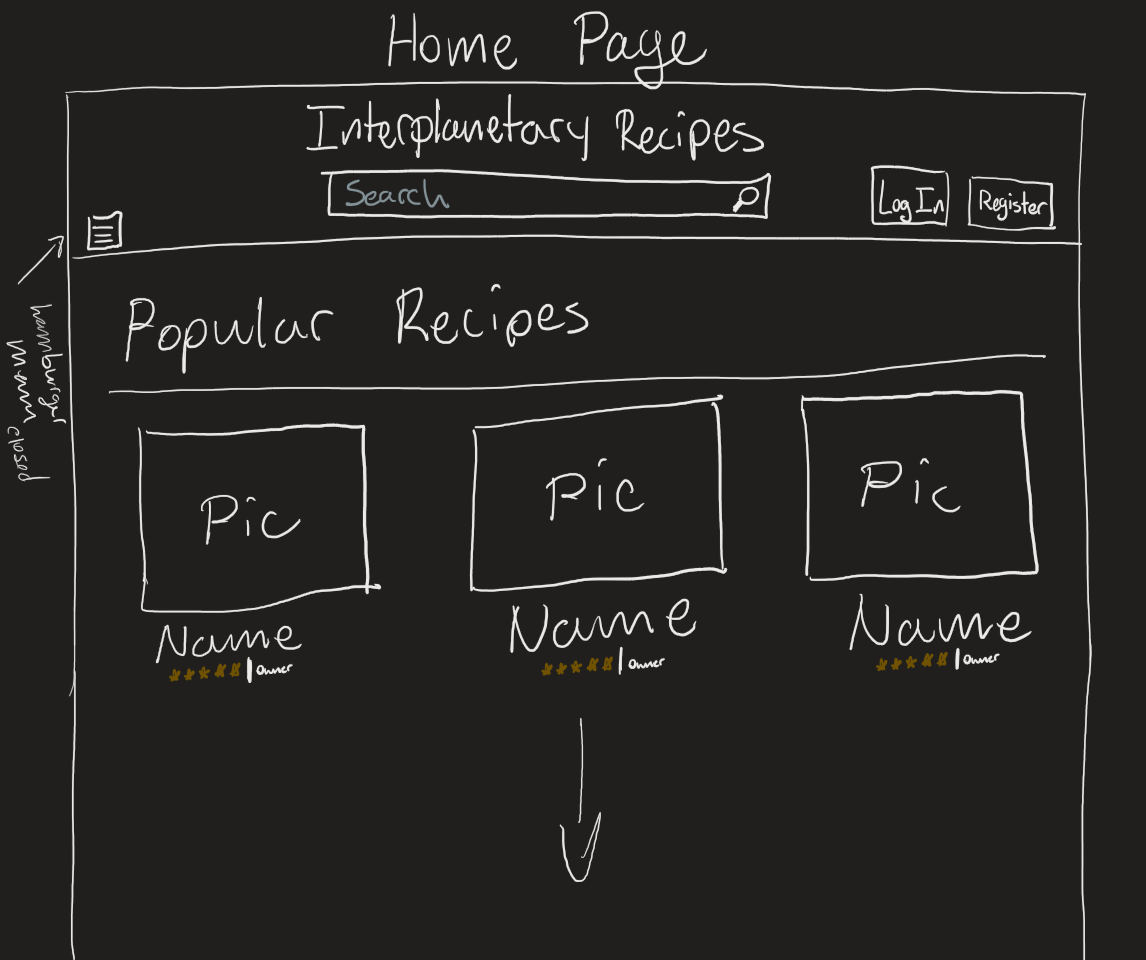 Home Page
Interplanetary Recipes
Search
Log In
Register
hamburger
menu closed
Popular Recipes
Pic
Pic
Pic
Name
Name
Name
| Owner
| Owner
| Owner